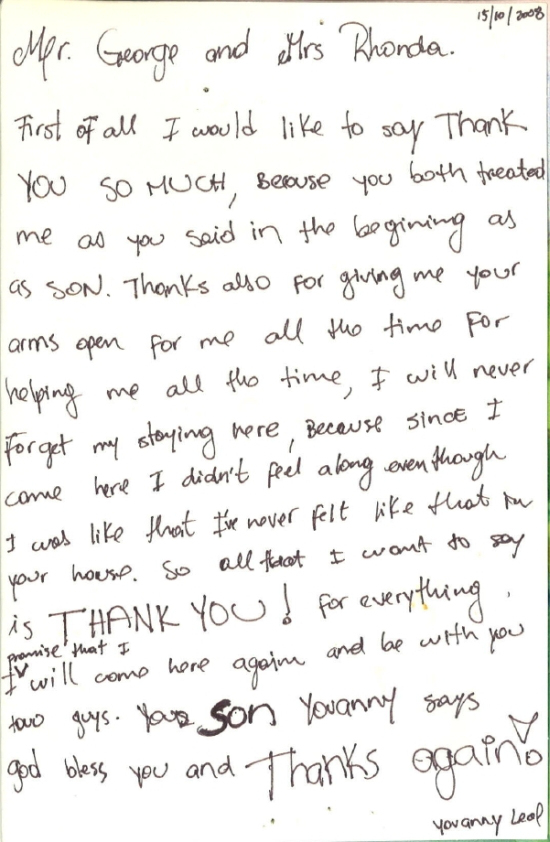 15/10/2008
Mr. George and Mrs Rhonda.
First of all I would like to say Thank
YOU SO MUCH, Because you both treated
me as you said in the begining as
as SON. Thanks also For giving me your
arms open for me all the time For
helping me all the time, I will never
Forget my staying here, Because since I
came here I didn't feel along even though
I was like that I've never felt like that in
your house. So all that I want to say
is THANK YOU! for everything.
promise that I
I will come here again and be with you
two guys. Your SON Yovanny says
god bless you and Thanks again!
Yovanny Leal